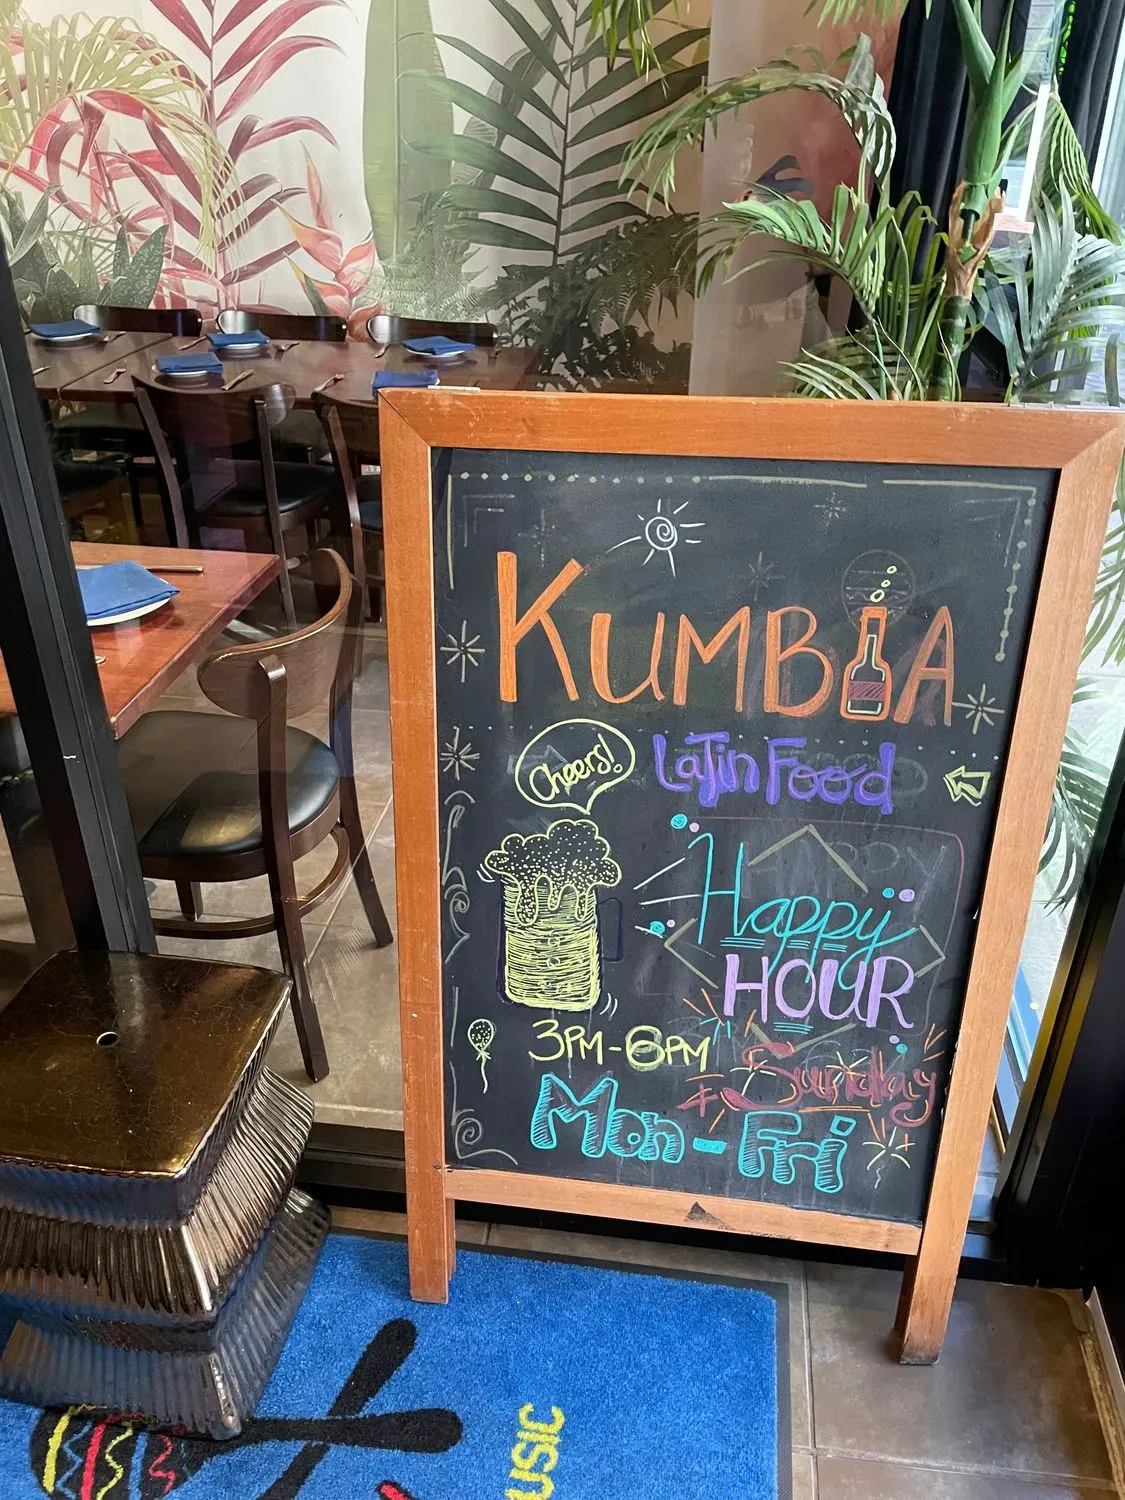 KUMBIA
Cheers!
Latin Food
HAPPY
Happy
HOUR
3PM-6PM
+ Sunday
Mon-Fri
USIC